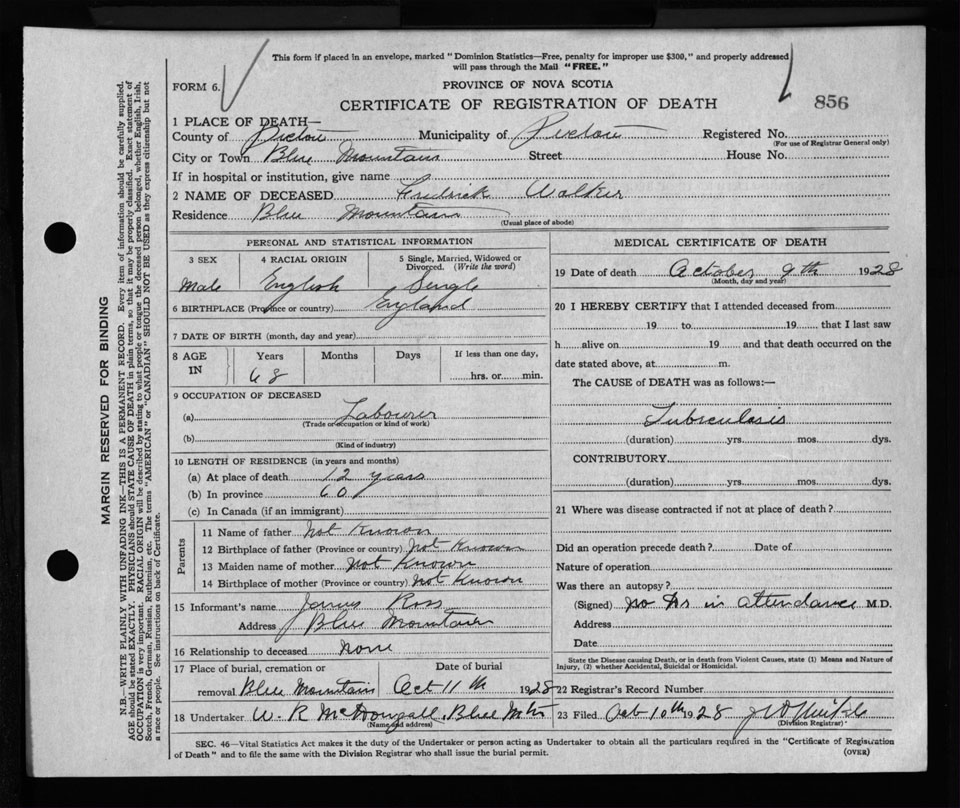 This form if placed in an envelope, marked "Dominion Statistics—Free, penalty for improper use $300," and properly addressed
will pass through the Mail "FREE."
FORM 6.
PROVINCE OF NOVA SCOTIA
CERTIFICATE OF REGISTRATION OF DEATH
856
1 PLACE OF DEATH—
County of Pictou Municipality of Pictou Registered No.
(For use of Registrar General only)
City or Town Blue Mountain Street House No.
If in hospital or institution, give name
2 NAME OF DECEASED Fredrick Walker
Residence Blue Mountain
(Usual place of abode)
PERSONAL AND STATISTICAL INFORMATION
3 SEX 4 RACIAL ORIGIN 5 Single, Married, Widowed or Divorced. (Write the word)
Male English Single
6 BIRTHPLACE (Province or country) England
7 DATE OF BIRTH (month, day and year)
8 AGE IN Years Months Days If less than one day,
68 hrs. or min.
9 OCCUPATION OF DECEASED
(a) Labourer
(Trade or occupation or kind of work)
(b)
(Kind of industry)
10 LENGTH OF RESIDENCE (in years and months)
(a) At place of death 12 years
(b) In province 60
(c) In Canada (if an immigrant)
Parents
11 Name of father Not Known
12 Birthplace of father (Province or country) Not Known
13 Maiden name of mother Not Known
14 Birthplace of mother (Province or country) Not Known
15 Informant's name James Ross
Address Blue Mountain
16 Relationship to deceased None
17 Place of burial, cremation or Date of burial
removal Blue Mountain Oct 11th 1928
18 Undertaker W. R McDougall, Blue Mtn
(Name and address)
MEDICAL CERTIFICATE OF DEATH
19 Date of death October 9th 1928
(Month, day and year)
20 I HEREBY CERTIFY that I attended deceased from
19 to 19 that I last saw
h alive on 19 and that death occurred on the
date stated above, at m.
The CAUSE of DEATH was as follows:—
Tubrculosis
(duration) yrs. mos. dys.
CONTRIBUTORY
(duration) yrs. mos. dys.
21 Where was disease contracted if not at place of death?
Did an operation precede death? Date of
Nature of operation
Was there an autopsy?
(Signed) No Drs in attendance M.D.
Address
Date
State the Disease causing Death, or in death from Violent Causes, state (1) Means and Nature of
Injury, (2) whether Accidental, Suicidal or Homicidal.
22 Registrar's Record Number
23 Filed Oct 10th 1928
(Division Registrar)
SEC. 46—Vital Statistics Act makes it the duty of the Undertaker or person acting as Undertaker to obtain all the particulars required in the "Certificate of Registration
of Death" and to file the same with the Division Registrar who shall issue the burial permit. (OVER)
MARGIN RESERVED FOR BINDING
N.B.—WRITE PLAINLY WITH UNFADING INK—THIS IS A PERMANENT RECORD. Every item of information should be carefully supplied.
AGE should be stated EXACTLY. PHYSICIANS should STATE CAUSE OF DEATH in plain terms, so that it may be properly classified. Exact statement of
OCCUPATION is very important. RACIAL ORIGIN will be described by stating to what people or tongue the deceased person belonged, whether English, Irish,
Scotch, French, German, Russian, Ruthenian, etc. The terms "AMERICAN" or "CANADIAN" SHOULD NOT BE USED as they express citizenship but not
a race or people. See instructions on back of Certificate.